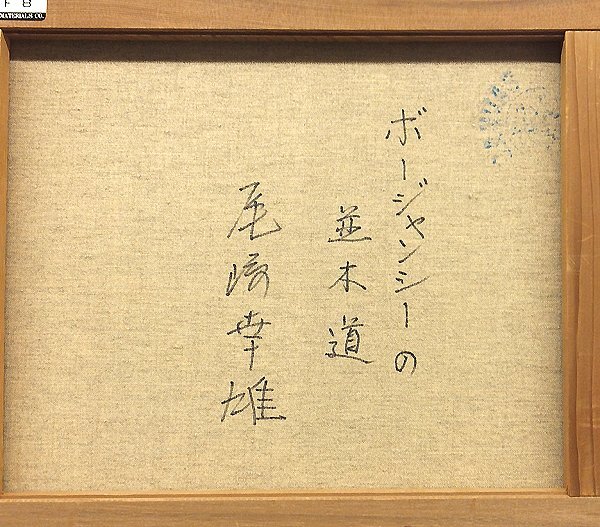 ボージャンシーの
並木道
尾崎幸雄
F 8
MATERIALS CO.